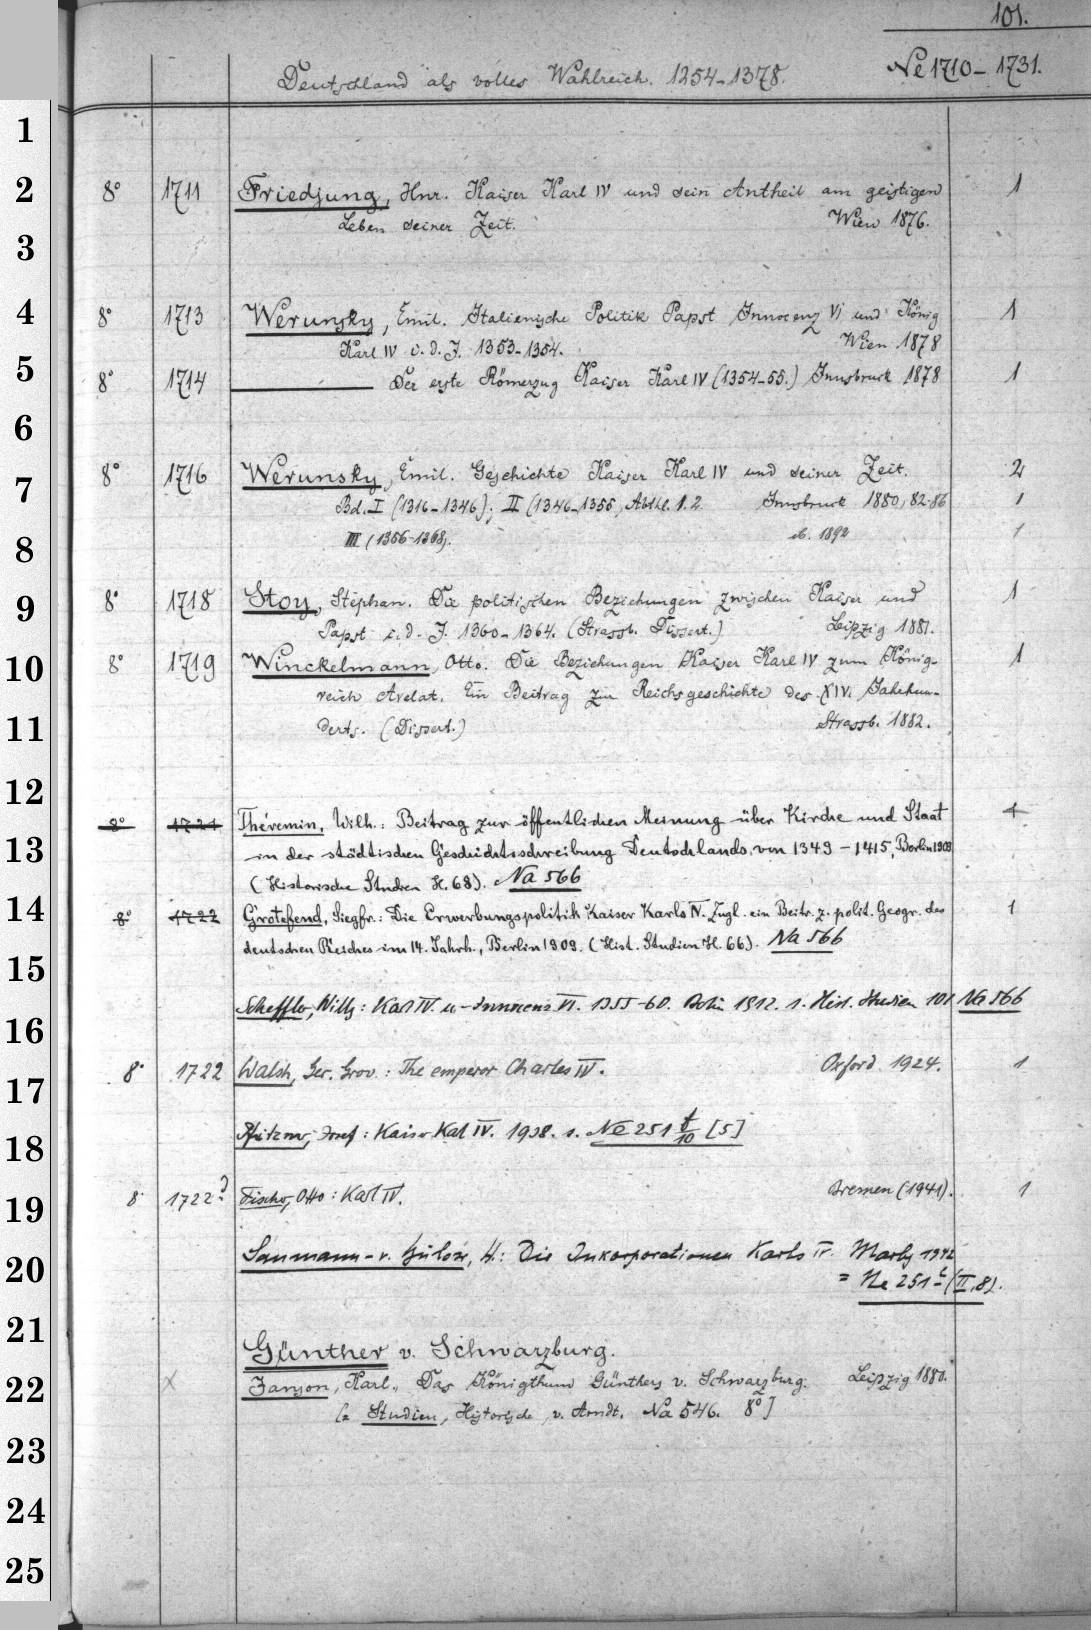 101.
Deutschland als volles Wahlreich. 1254-1378. Ne 1710-1731.
1
2 8° 1711 Friedjung, Hnr. Kaiser Karl IV und sein Antheil am geistigen 1
Leben seiner Zeit. Wien 1876.
3
4 8° 1713 Werunsky, Emil. Italienische Politik Papst Innocenz VI und König 1
Karl IV i. d. J. 1353-1354. Wien 1878
5 8° 1714 ——— Der erste Römerzug Kaiser Karl IV (1354-55.) Innsbruck 1878 1
6
7 8° 1716 Werunsky, Emil. Geschichte Kaiser Karl IV und seiner Zeit. 2
Bd. I (1316-1346); II (1346-1355, Abthl. 1. 2. Innsbruck 1880, 82-86 1
8 III (1356-1368). eb. 1892 1
9 8° 1718 Stoy, Stephan. Die politischen Beziehungen zwischen Kaiser und 1
Papst i. d. J. 1360-1364. (Strassb. Dissert.) Leipzig 1881.
10 8° 1719 Winckelmann, Otto. Die Beziehungen Kaiser Karl IV zum König- 1
reich Arelat. Ein Beitrag zur Reichsgeschichte des XIV. Jahrhun-
11 derts. (Dissert.) Strassb. 1882.
12
8° 1721 Thévemin, Wilh.: Beitrag zur öffentlichen Meinung über Kirche und Staat 1
13 in der städtischen Geschichtsschreibung Deutschlands von 1349-1415, Berlin 1909
(Historische Studien H. 68). Na 566
14 8° 1722 Grotefend, Siegfr.: Die Erwerbungspolitik Kaiser Karls IV. Zugl. ein Beitr. z. polit. Geogr. des 1
deutschen Reiches im 14. Jahrh., Berlin 1909. (Hist. Studien H. 66). Na 566
15
Scheffler, Willy: Karl IV. u. Innocenz VI. 1355-60. Berlin 1912. s. Hist. Studien 101 Na 566
16
17 8° 1722 Walsh, Ger. Grov.: The emperor Charles IV. Oxford 1924. 1
18 Pfitzner, Josef: Kaiser Karl IV. 1938. s. Ne 251 t/10 [5]
19 8° 1722 Fischer, Otto: Karl IV. Bremen (1941). 1
20 Sanmann-v. Bülow, H.: Die Inkorporationen Karls IV. Marbg 1942
= Ne 251 (II,8).
21
Günther v. Schwarzburg.
22 X Janson, Karl. Das Königthum Günthers v. Schwarzburg. Leipzig 1880.
[= Studien, Historische v. Arndt. Na 546. 8°]
23
24
25